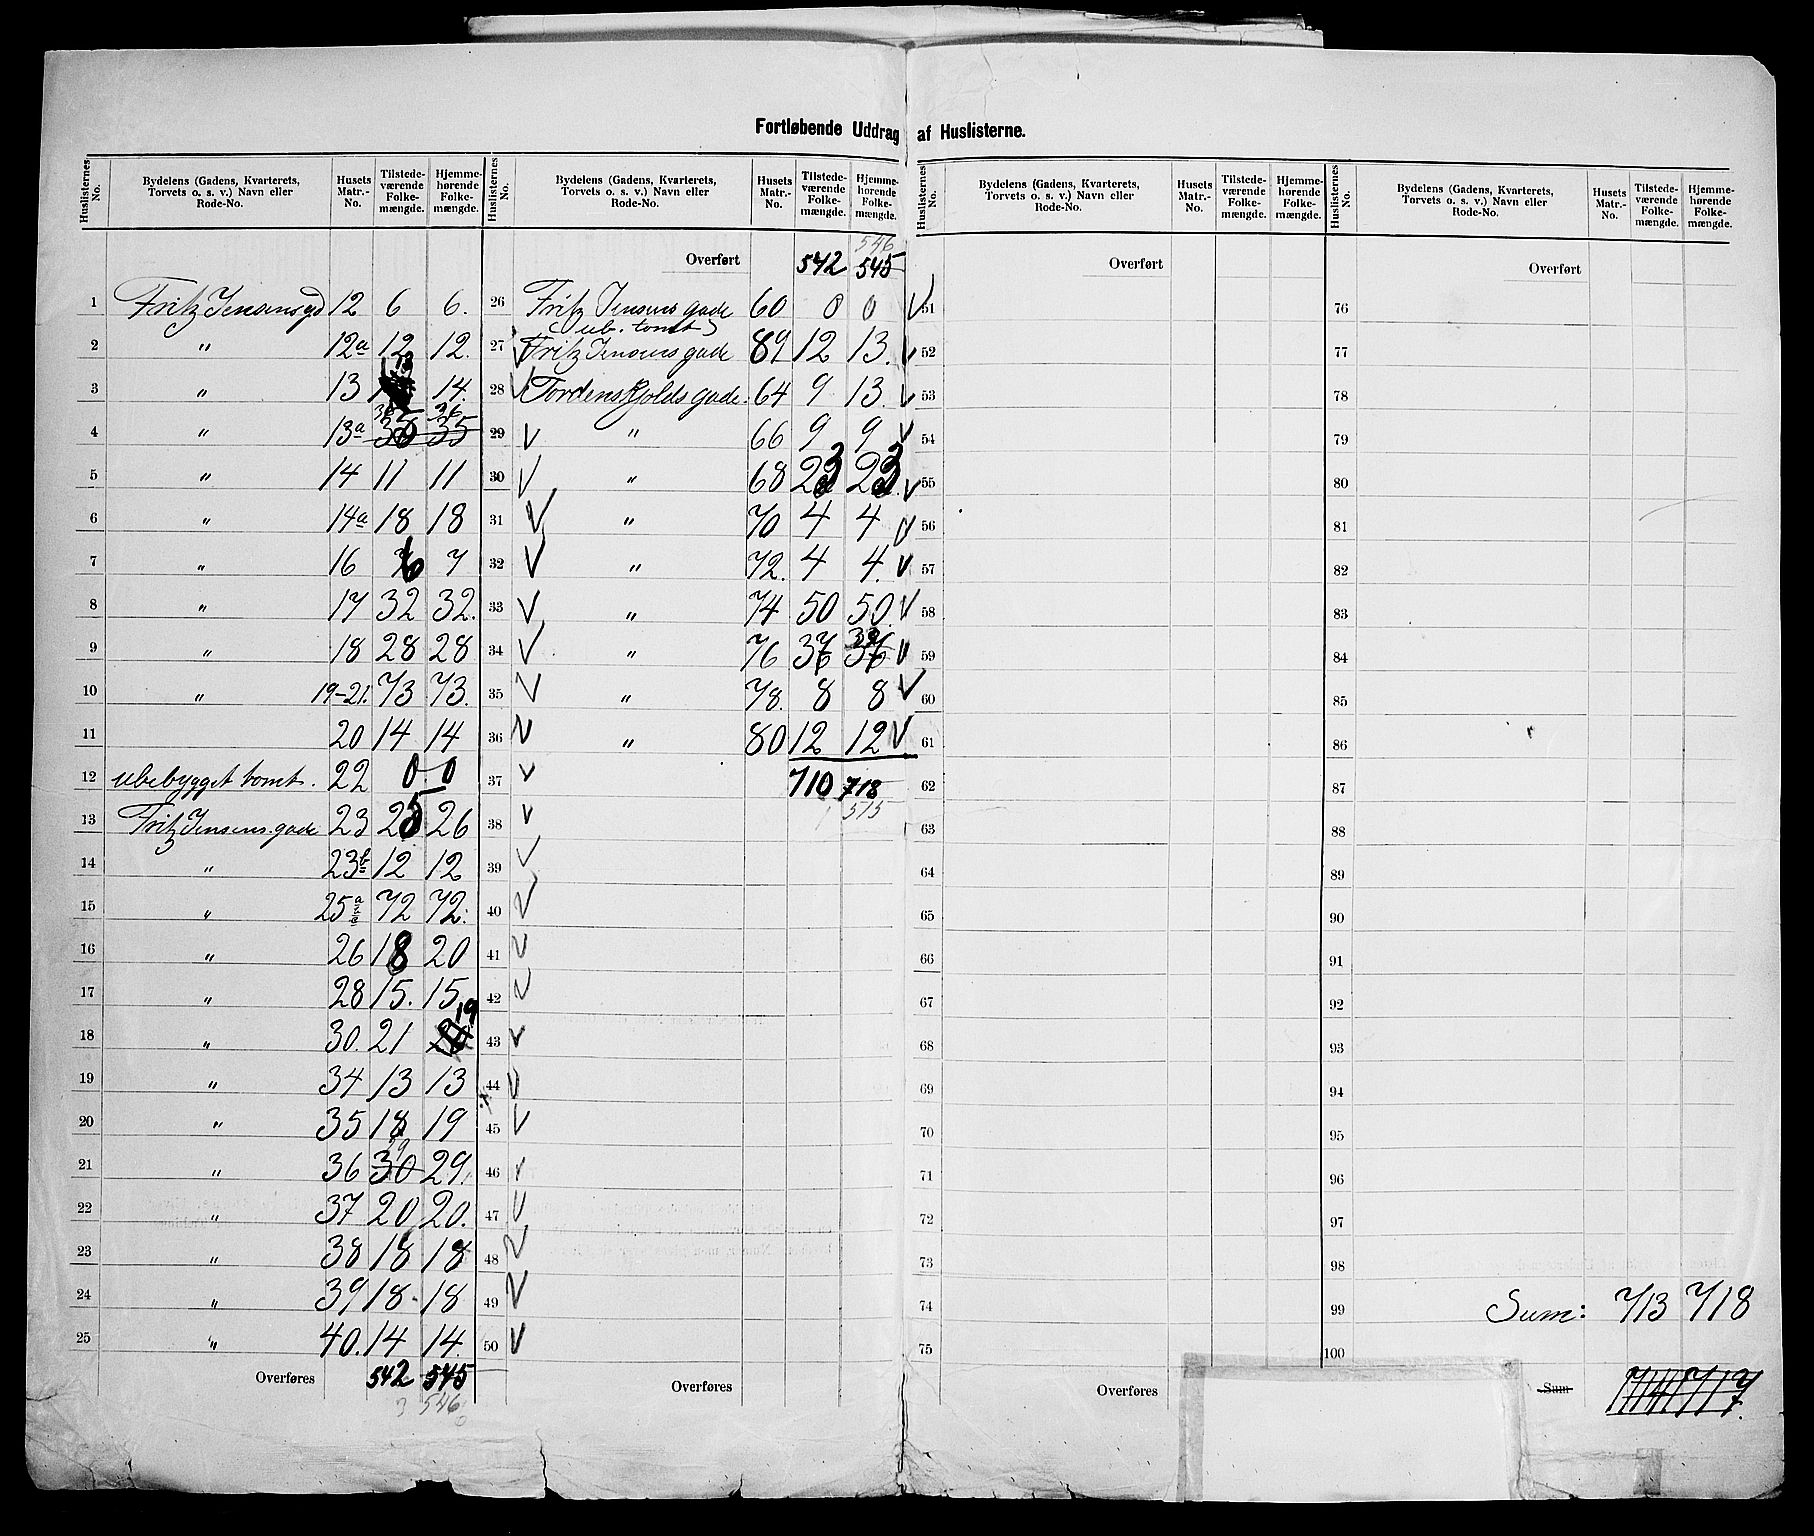 Fortløbende Uddrag af Huslisterne.
Huslisternes No. Bydelens (Gadens, Kvarterets, Torvets o. s. v.) Navn eller Rode-No. Husets Matr.-No. Tilstede-værende Folke-mængde. Hjemme-hørende Folke-mængde.
Huslisternes No. Bydelens (Gadens, Kvarterets, Torvets o. s. v.) Navn eller Rode-No. Husets Matr.-No. Tilstede-værende Folke-mængde. Hjemme-hørende Folke-mængde.
Huslisternes No. Bydelens (Gadens, Kvarterets, Torvets o. s. v.) Navn eller Rode-No. Husets Matr.-No. Tilstede-værende Folke-mængde. Hjemme-hørende Folke-mængde.
Huslisternes No. Bydelens (Gadens, Kvarterets, Torvets o. s. v.) Navn eller Rode-No. Husets Matr.-No. Tilstede-værende Folke-mængde. Hjemme-hørende Folke-mængde.
1 Fritz Jensensgd 12 6 6.
2 " 12a 12 12.
3 " 13 13 14.
4 " 13a 36 35 36 35
5 " 14 11 11
6 " 14a 18 18
7 " 16 6 7
8 " 17 32 32.
9 " 18 28 28
10 " 19-21. 73 73.
11 20 14 14
12 ubebygget tomt. 22 0 0
13 Fritz Jensens gade 23 25 26
14 " 23b 12 12
15 " 25a 72 72.
16 " 26 18 20
17 " 28 15. 15
18 " 30. 21 19
19 " 34 13 13
20 " 35 18 19
21 " 36 30 29.
22 " 37 20 20.
23 " 38 18 18
24 " 39 18 18
25 " 40. 14 14.
Overføres 542 545
3 546
546
Overført 542 545
26 Fritz Jensens gade 60 0 0 V
(ub. tomt)
27 V Fritz Jensens gade 89 12 13. V
28 V Tordenskjolds gade. 64 9 13. V
29 V " 66 9 9 V
30 V " 68 23 23 V
31 V " 70 4 4 V
32 V " 72. 4 4. V
33 V " 74 50 50. V
34 V " 76 36 V
35 V " 78. 8 8 V
36 V " 80 12 12 V
37 V 710 718
38 V 515
39 V
40 V
41 V
42 V
43 V
44 V
45 V
46 V
47 V
48 V
49 V
50 V
Overføres
Overført
51
52
53
54
55
56
57
58
59
60
61
62
63
64
65
66
67
68
69
70
71
72
73
74
75
Overføres
Overført
76
77
78
79
80
81
82
83
84
85
86
87
88
89
90
91
92
93
94
95
96
97
98
99 Sum: 713 718
100
Sum 714 717